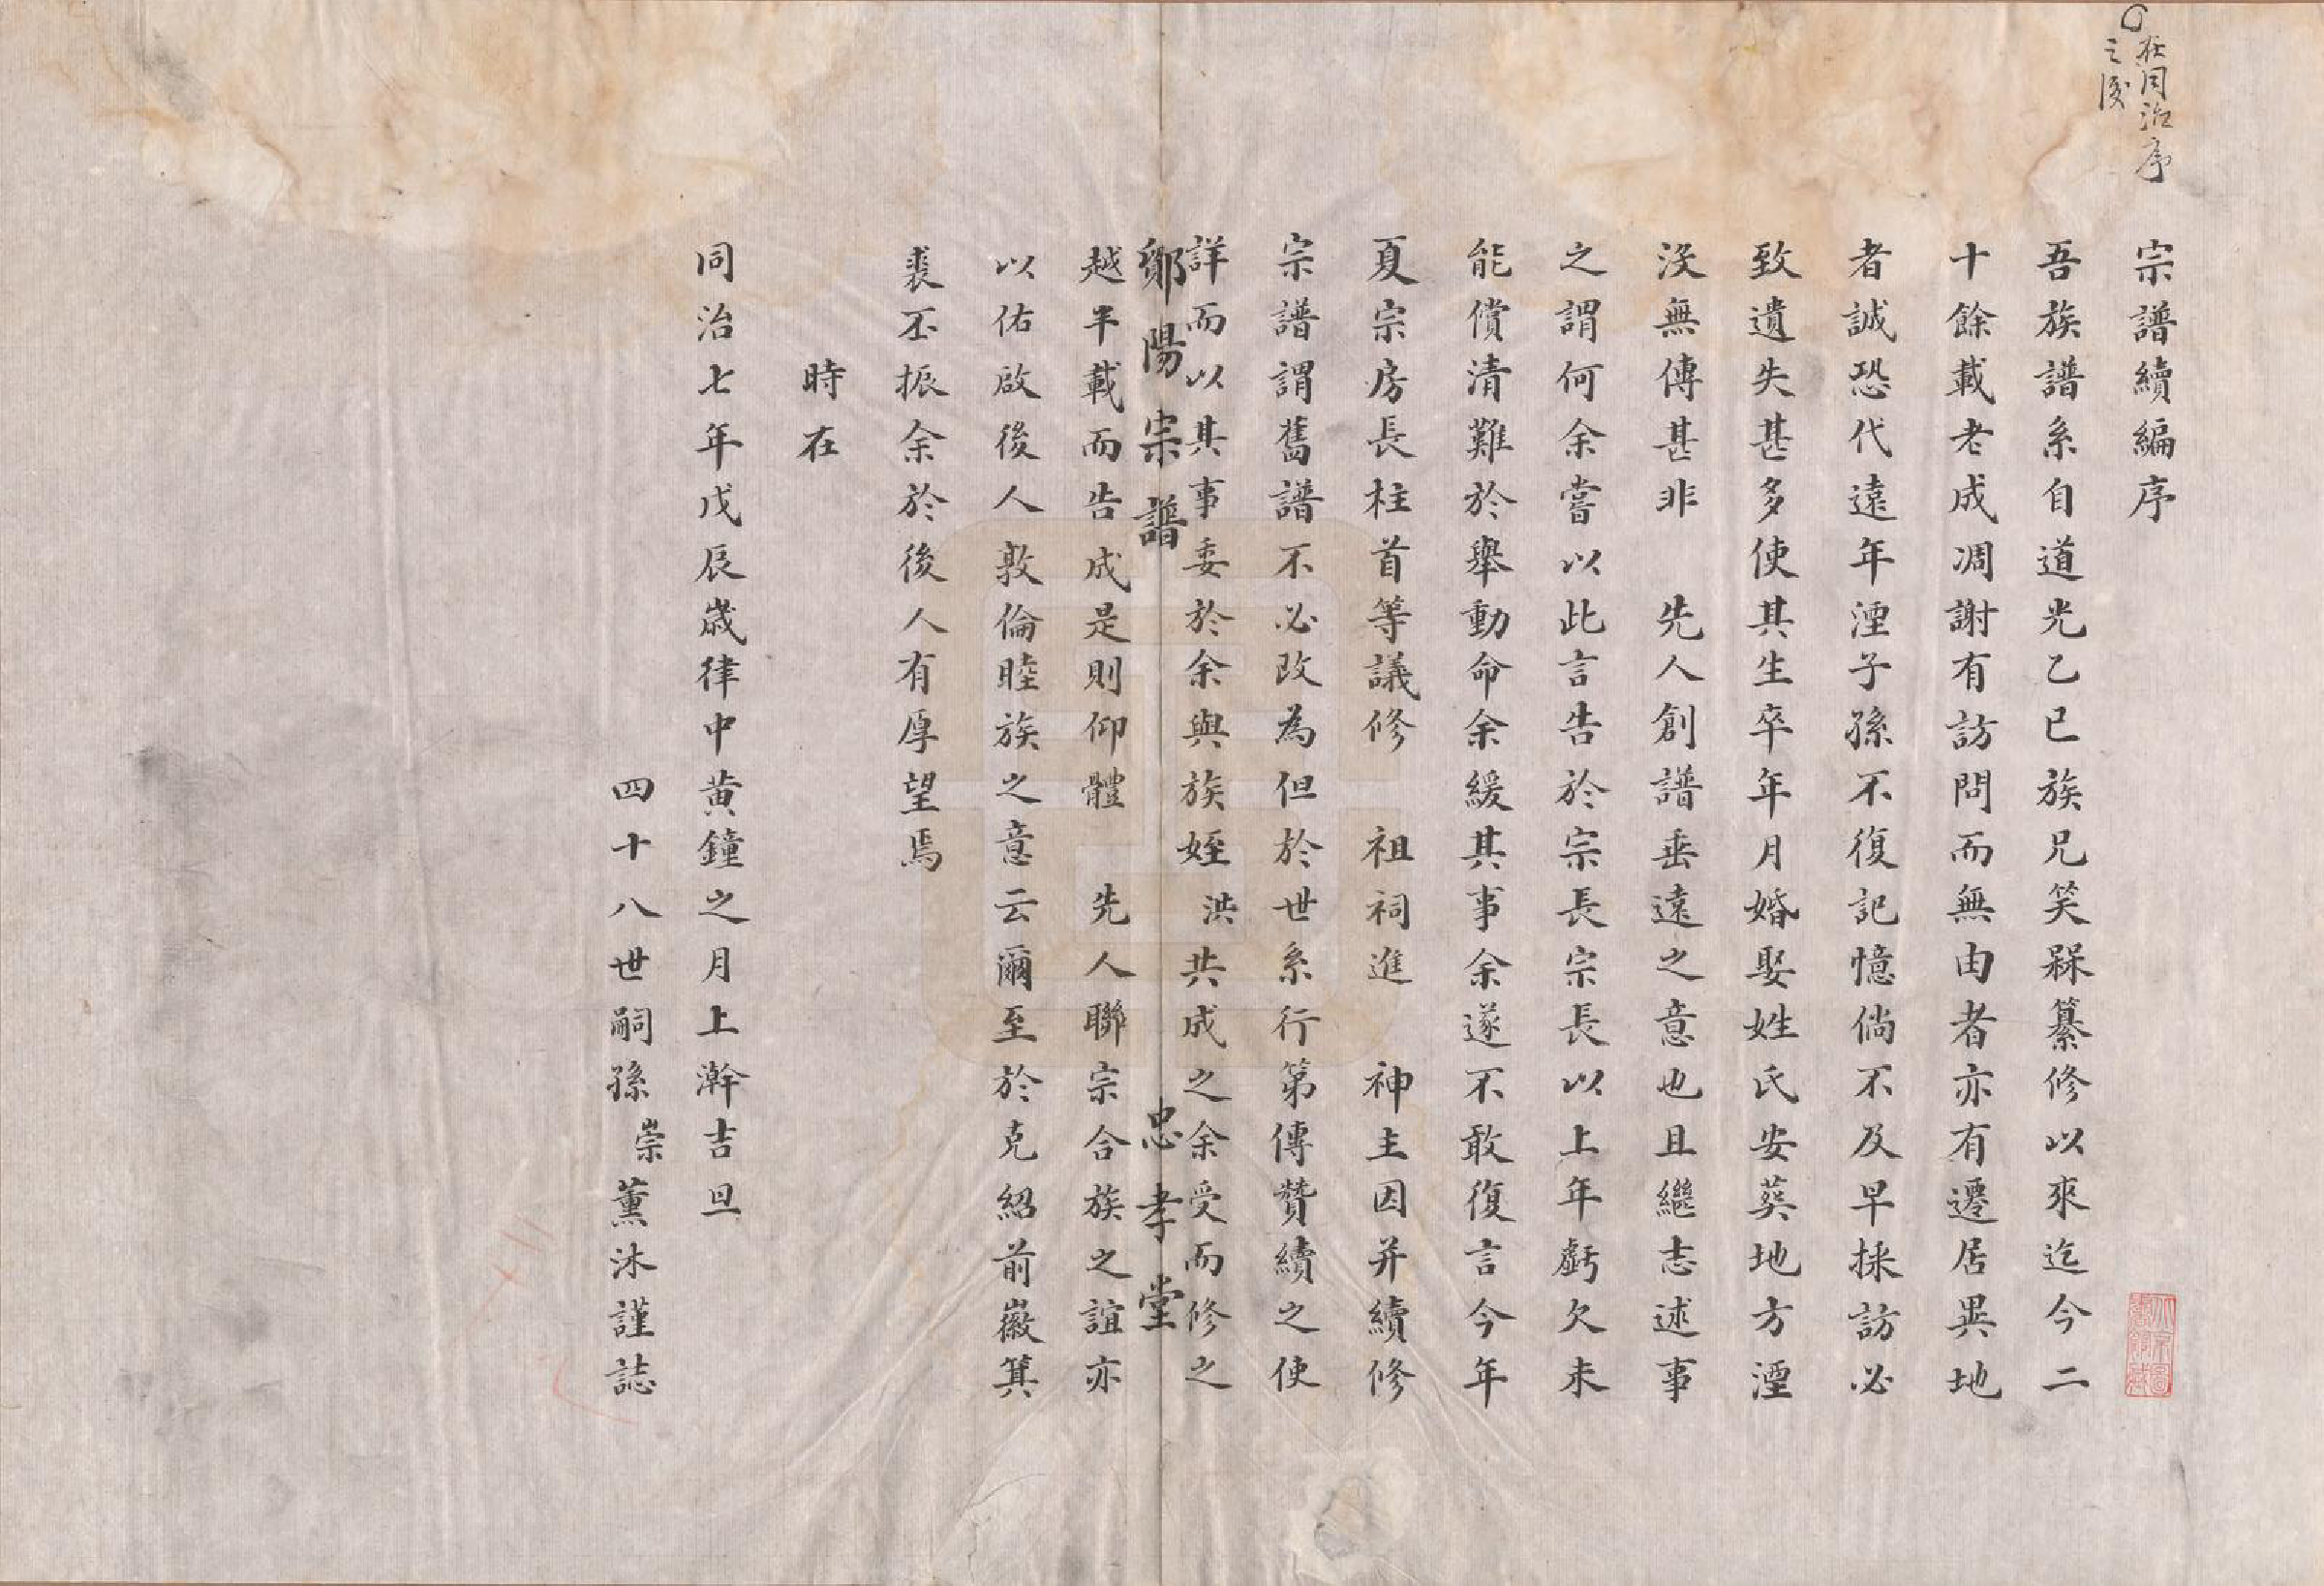 在同治序
之後
宗譜續編序
吾族譜系自道光乙巳族兄笑槑纂修以來迄今二
十餘載老成凋謝有訪問而無由者亦有遷居異地
者誠恐代遠年湮子孫不復記憶倘不及早採訪必
致遺失甚多使其生卒年月婚娶姓氏安葬地方湮
沒無傳甚非 先人創譜垂遠之意也且繼志述事
之謂何余嘗以此言告於宗長宗長以上年虧欠未
能償清難於舉動命余緩其事余遂不敢復言今年
夏宗房長柱首等議修 祖祠進 神主因并續修
宗譜謂舊譜不必改為但於世系行第傳贊續之使
詳而以其事委於余與族姪洪共成之余受而修之
鄭陽宗譜 忠孝堂
越半載而告成是則仰體 先人聯宗合族之誼亦
以佑啟後人敦倫睦族之意云爾至於克紹前徽箕
裘丕振余於後人有厚望焉
時在
同治七年戊辰歲律中黃鐘之月上澣吉旦
四十八世嗣孫崇薰沐謹誌